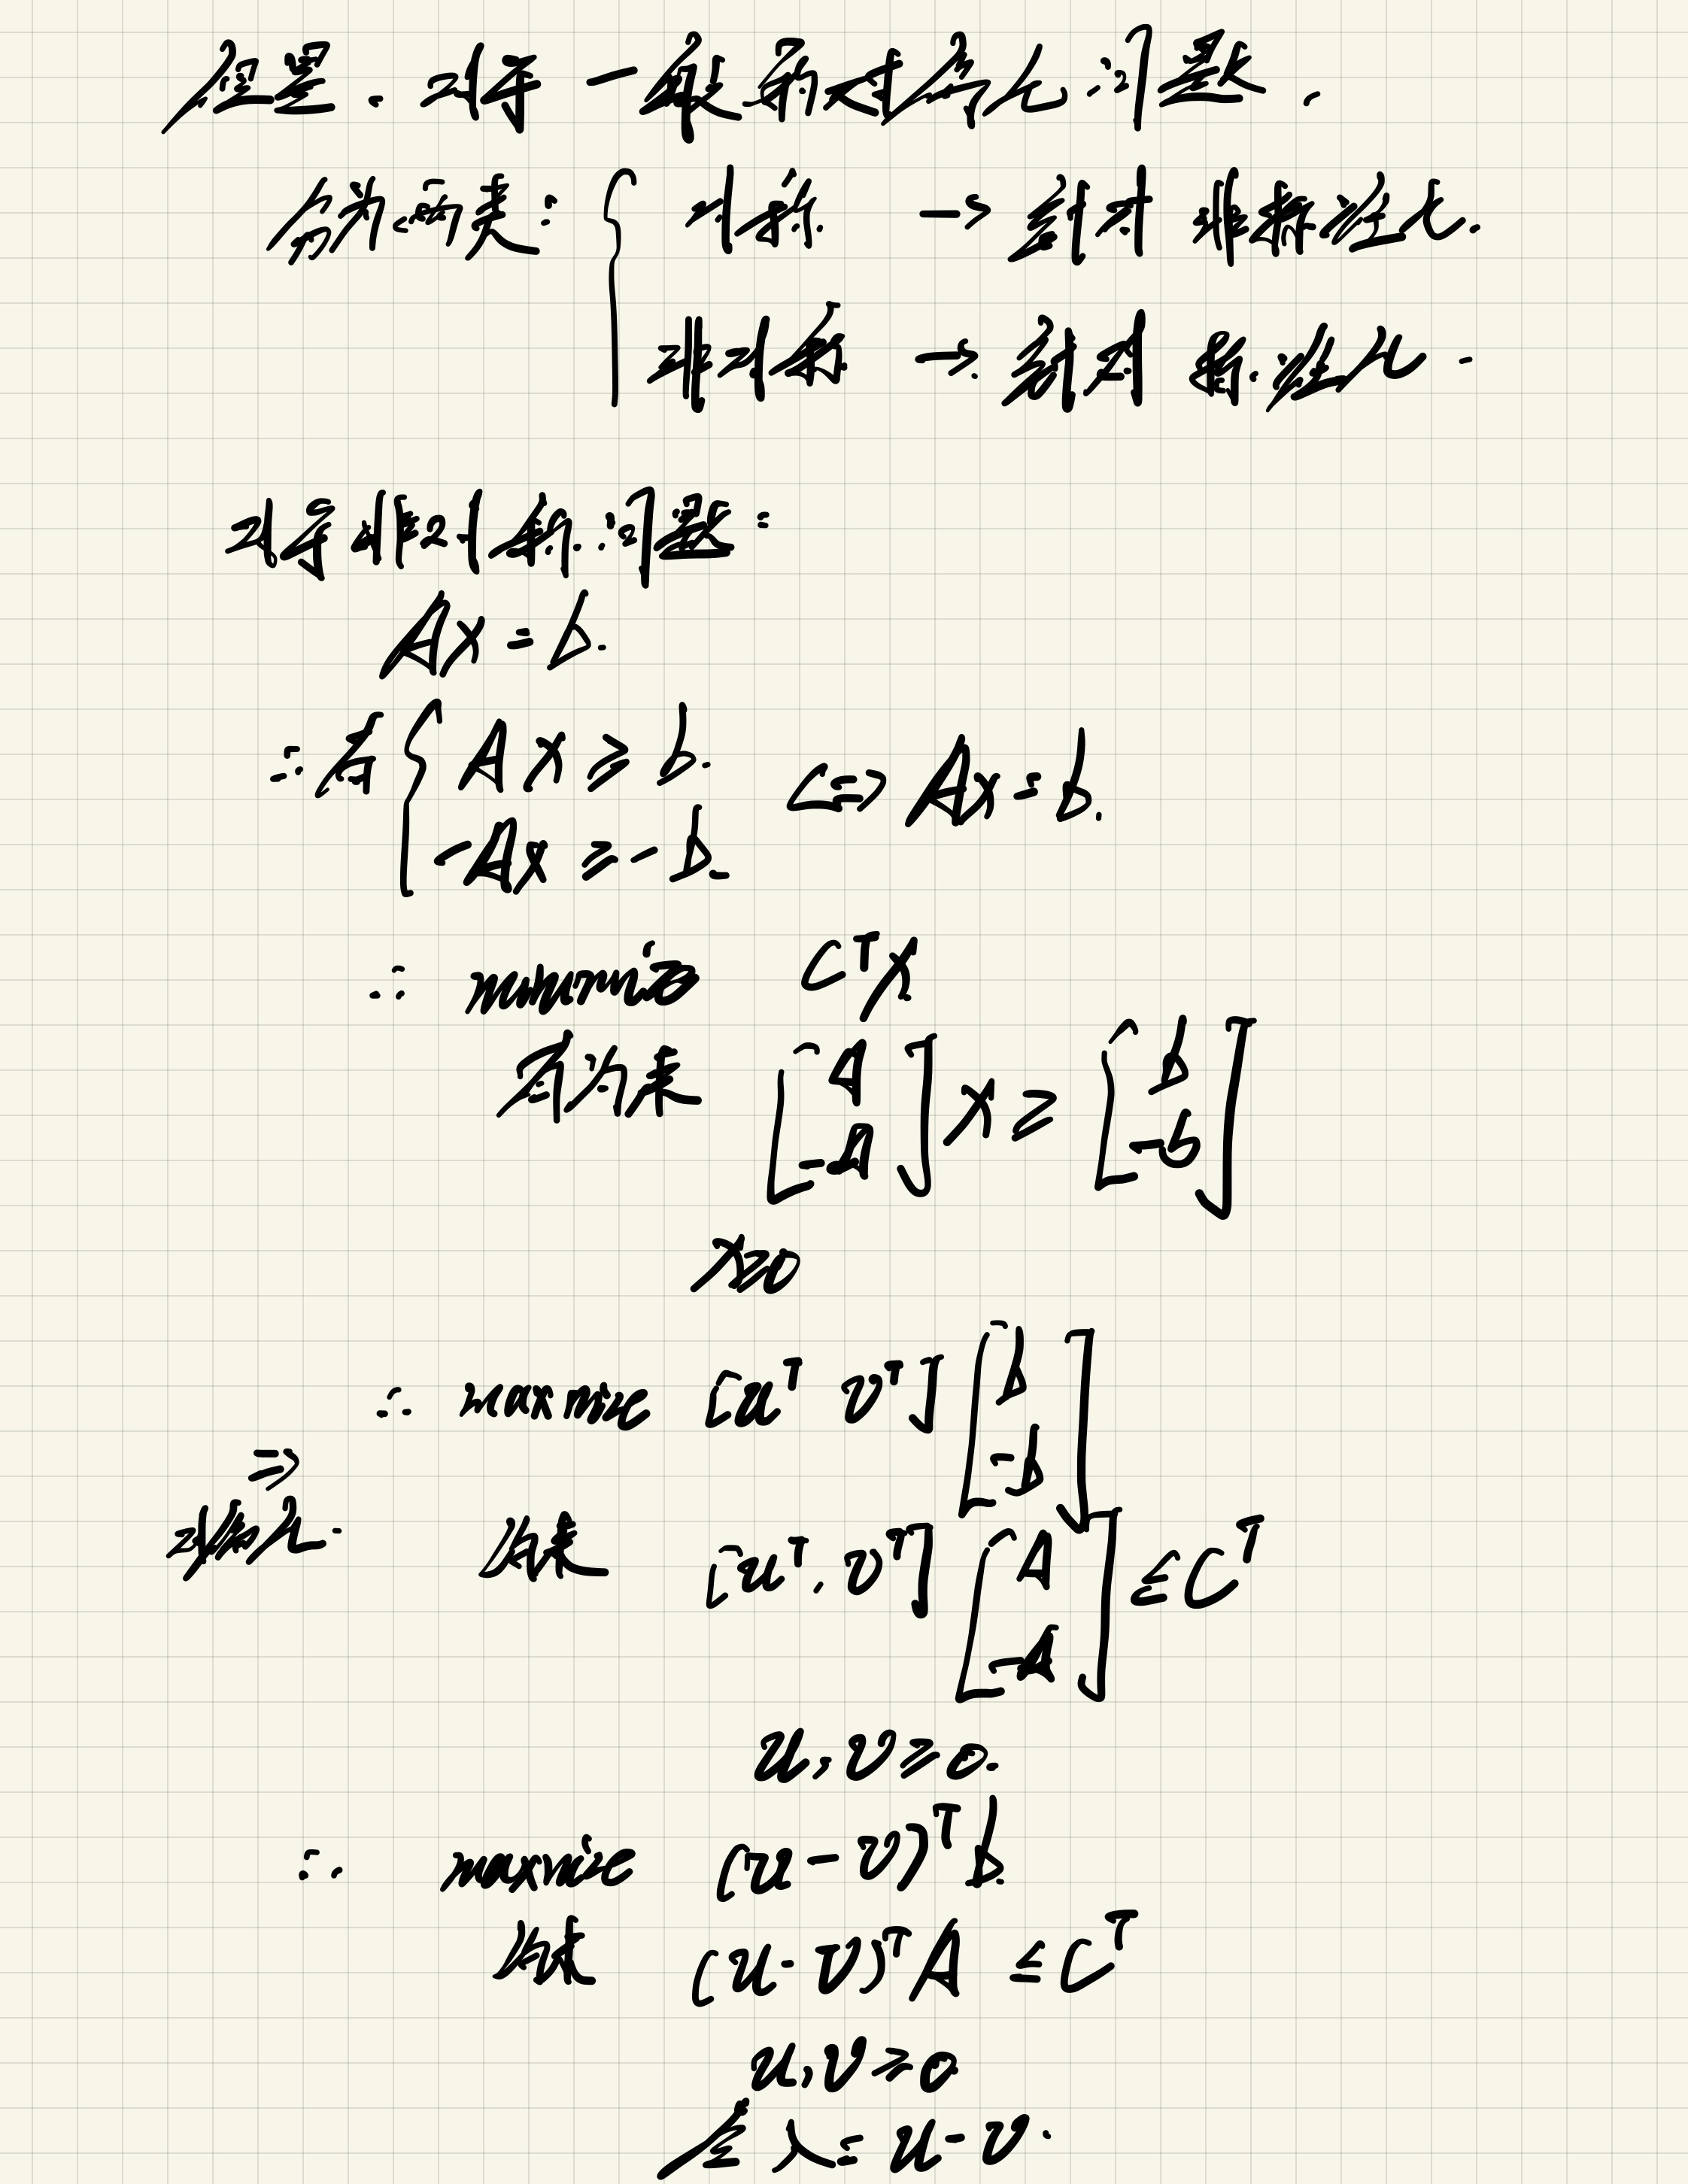 但是. 对于一般的对偶化问题.
分为两类: { 对称 → 针对 非标准化.
非对称 → 针对 标准化.
对于非对称问题:
Ax = b.
∴ 若 { Ax ≥ b. <=> Ax = b.
-Ax ≥ -b.
∴ minimize C^T x
约束 [A -A] x ≥ [b -b]
x≥0
∴ maxmize [u^T v^T] [b -b]
⇒
对偶化. 约束 [u^T, v^T] [A -A] ≤ C^T
u, v ≥ 0.
∴ maxmize (u - v)^T b.
约束 (u - v)^T A ≤ C^T
u, v ≥ 0
令 λ = u - v.